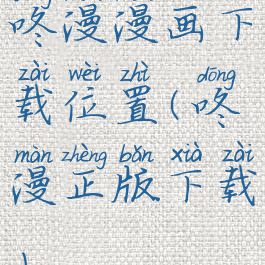 咚漫漫画下
zài wèi zhì dōng
载位置(咚
màn zhèng bǎn xià zài
漫正版下载